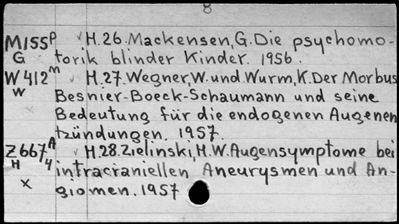 8
M155p ✓ H.26. Mackensen, G. Die psychomo-
G torik blinder Kinder. 1956.
W412m ✓ H.27. Wegner, W. und Wurm, K. Der Morbus
W Besnier-Boeck-Schaumann und seine
Bedeutung für die endogenen Augenen
tzündungen. 1957.
Z667A ✓ H.28. Zielinski, H.W. Augensymptome bei
H 4 intracraniellen Aneurysmen und An-
x giomen. 1957